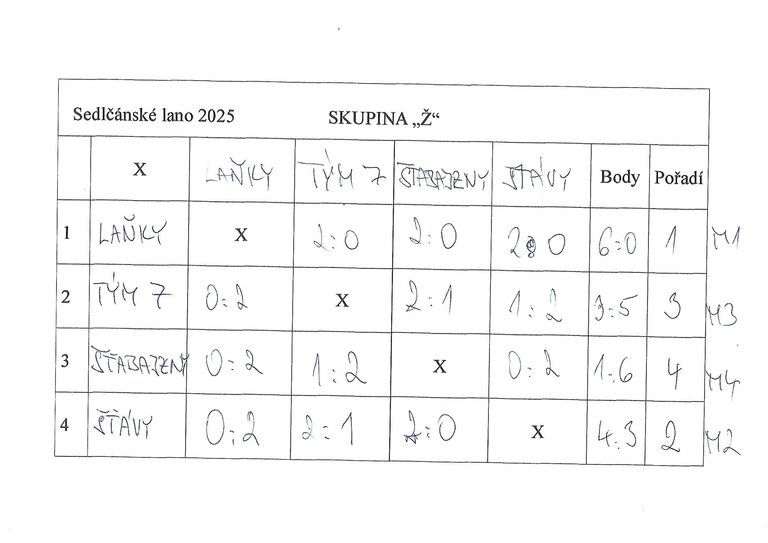 Sedlčánské lano 2025 SKUPINA „Ž“
X LAŇKY TÝM 7 ŠŤABAJZNY ŠŤÁVY Body Pořadí
1 LAŇKY X 2:0 2:0 2:0 6:0 1 M1
2 TÝM 7 0:2 X 2:1 1:2 3:5 3 M3
3 ŠŤABAJZNY 0:2 1:2 X 0:2 1:6 4 M4
4 ŠŤÁVY 0:2 2:1 2:0 X 4:3 2 M2